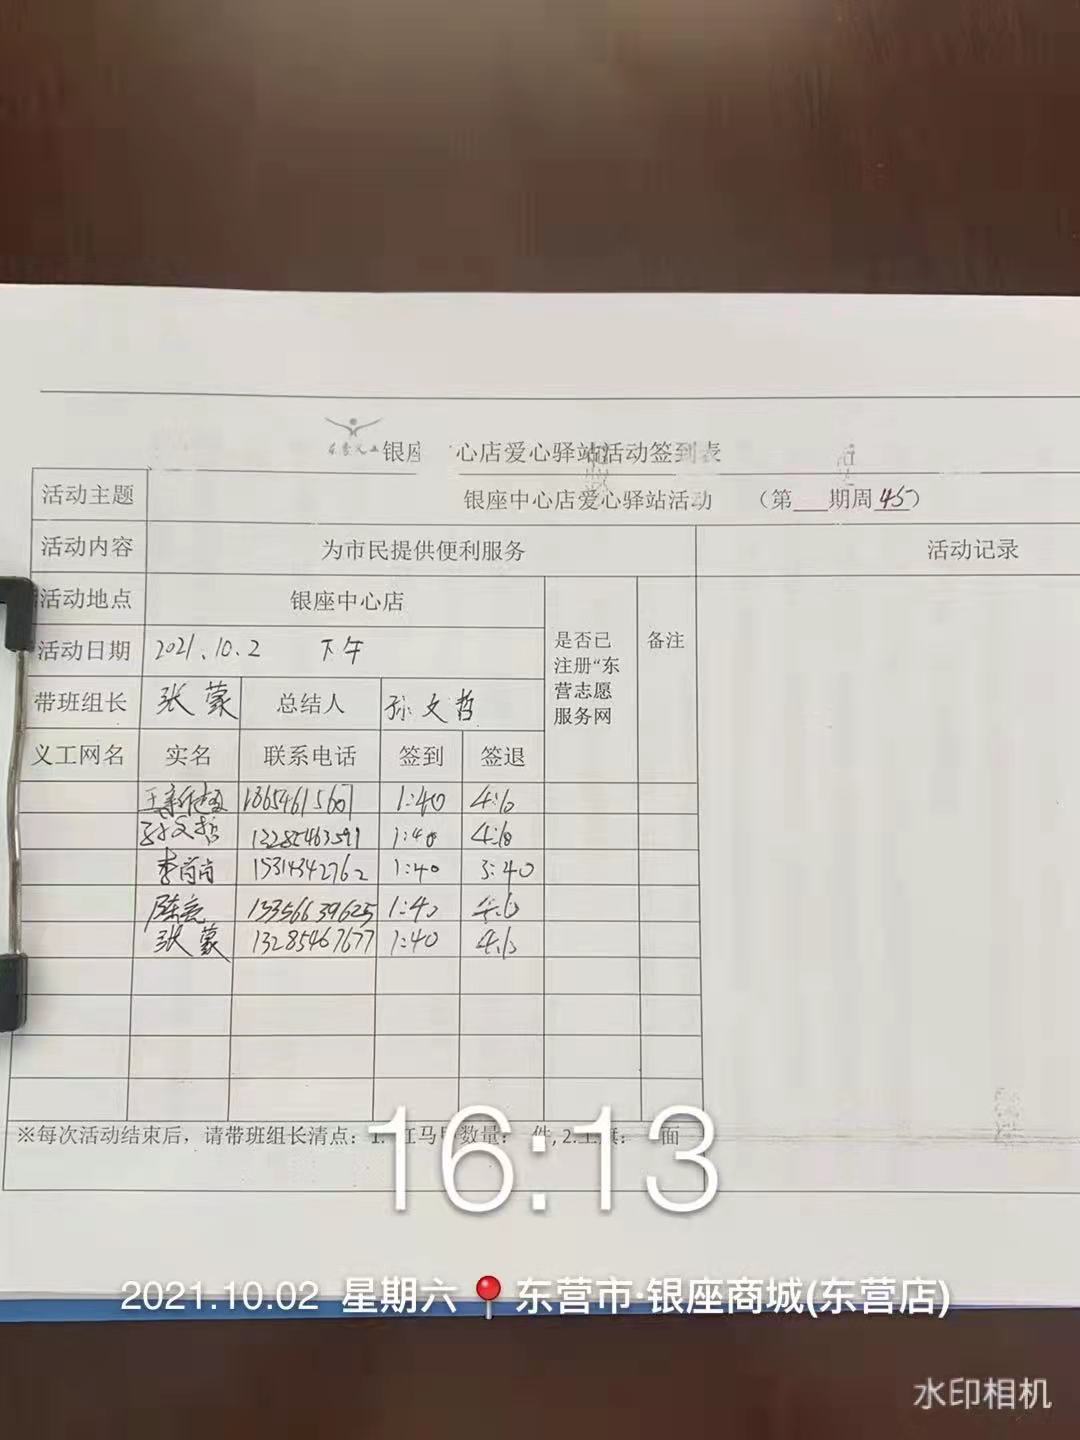 东营义工 银座 心店爱心驿站活动签到表
活动主题 银座中心店爱心驿站活动 （第___期周45）
活动内容 为市民提供便利服务 活动记录
活动地点 银座中心店 是否已注册“东营志愿服务网 备注
活动日期 2021.10.2 下午
带班组长 张蒙 总结人 孙文哲
义工网名 实名 联系电话 签到 签退
1865461560 1:40 4:10
孙文哲 13285463591 1:40 4:10
李肖肖 15314342762 1:40 3:40
陈亮 13356639625 1:40 4:10
张蒙 13285467677 1:40 4:10
※每次活动结束后，请带班组长清点：1.红马甲数量： 件, 2.工旗： 面
16:13
2021.10.02 星期六 东营市·银座商城(东营店)
水印相机